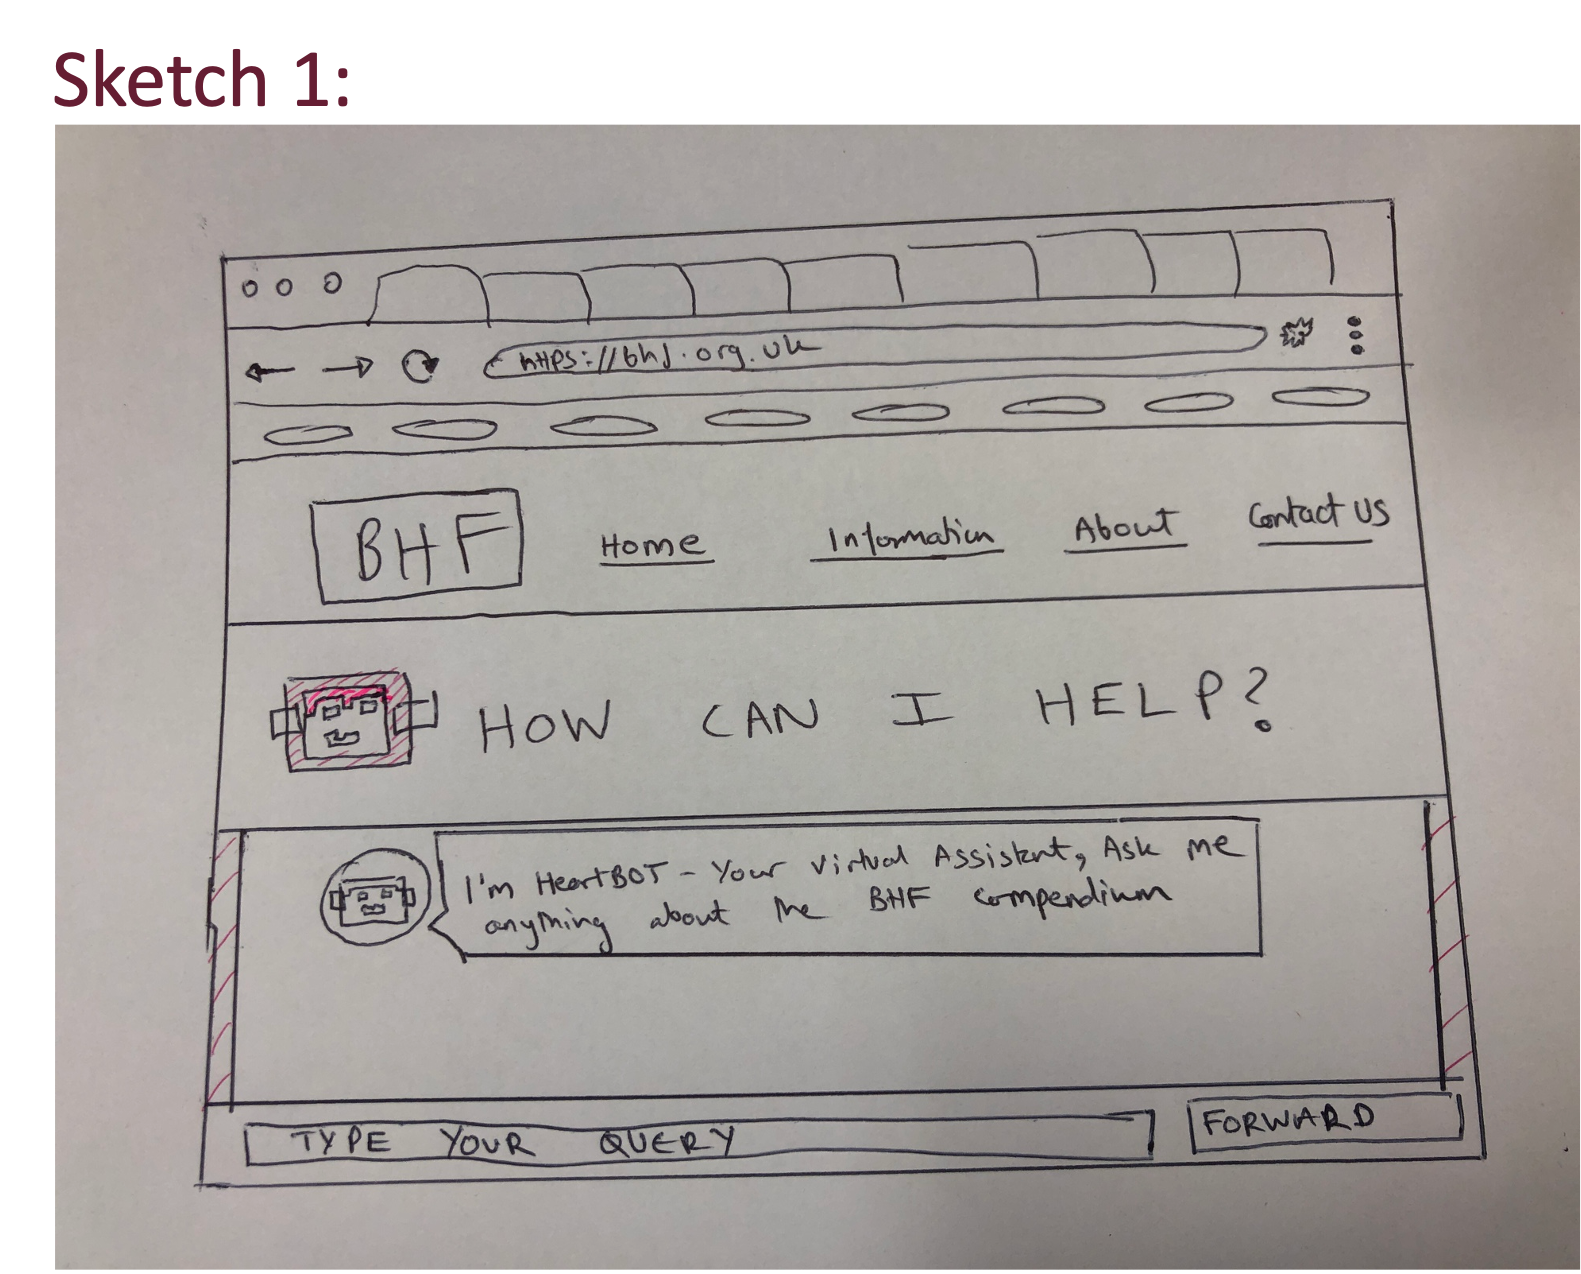 Sketch 1:
https://bhf.org.uk
BHF
Home Information About Contact US
HOW CAN I HELP?
I'm HeartBOT - Your Virtual Assistant, Ask me
anything about the BHF compendium
TYPE YOUR QUERY
FORWARD